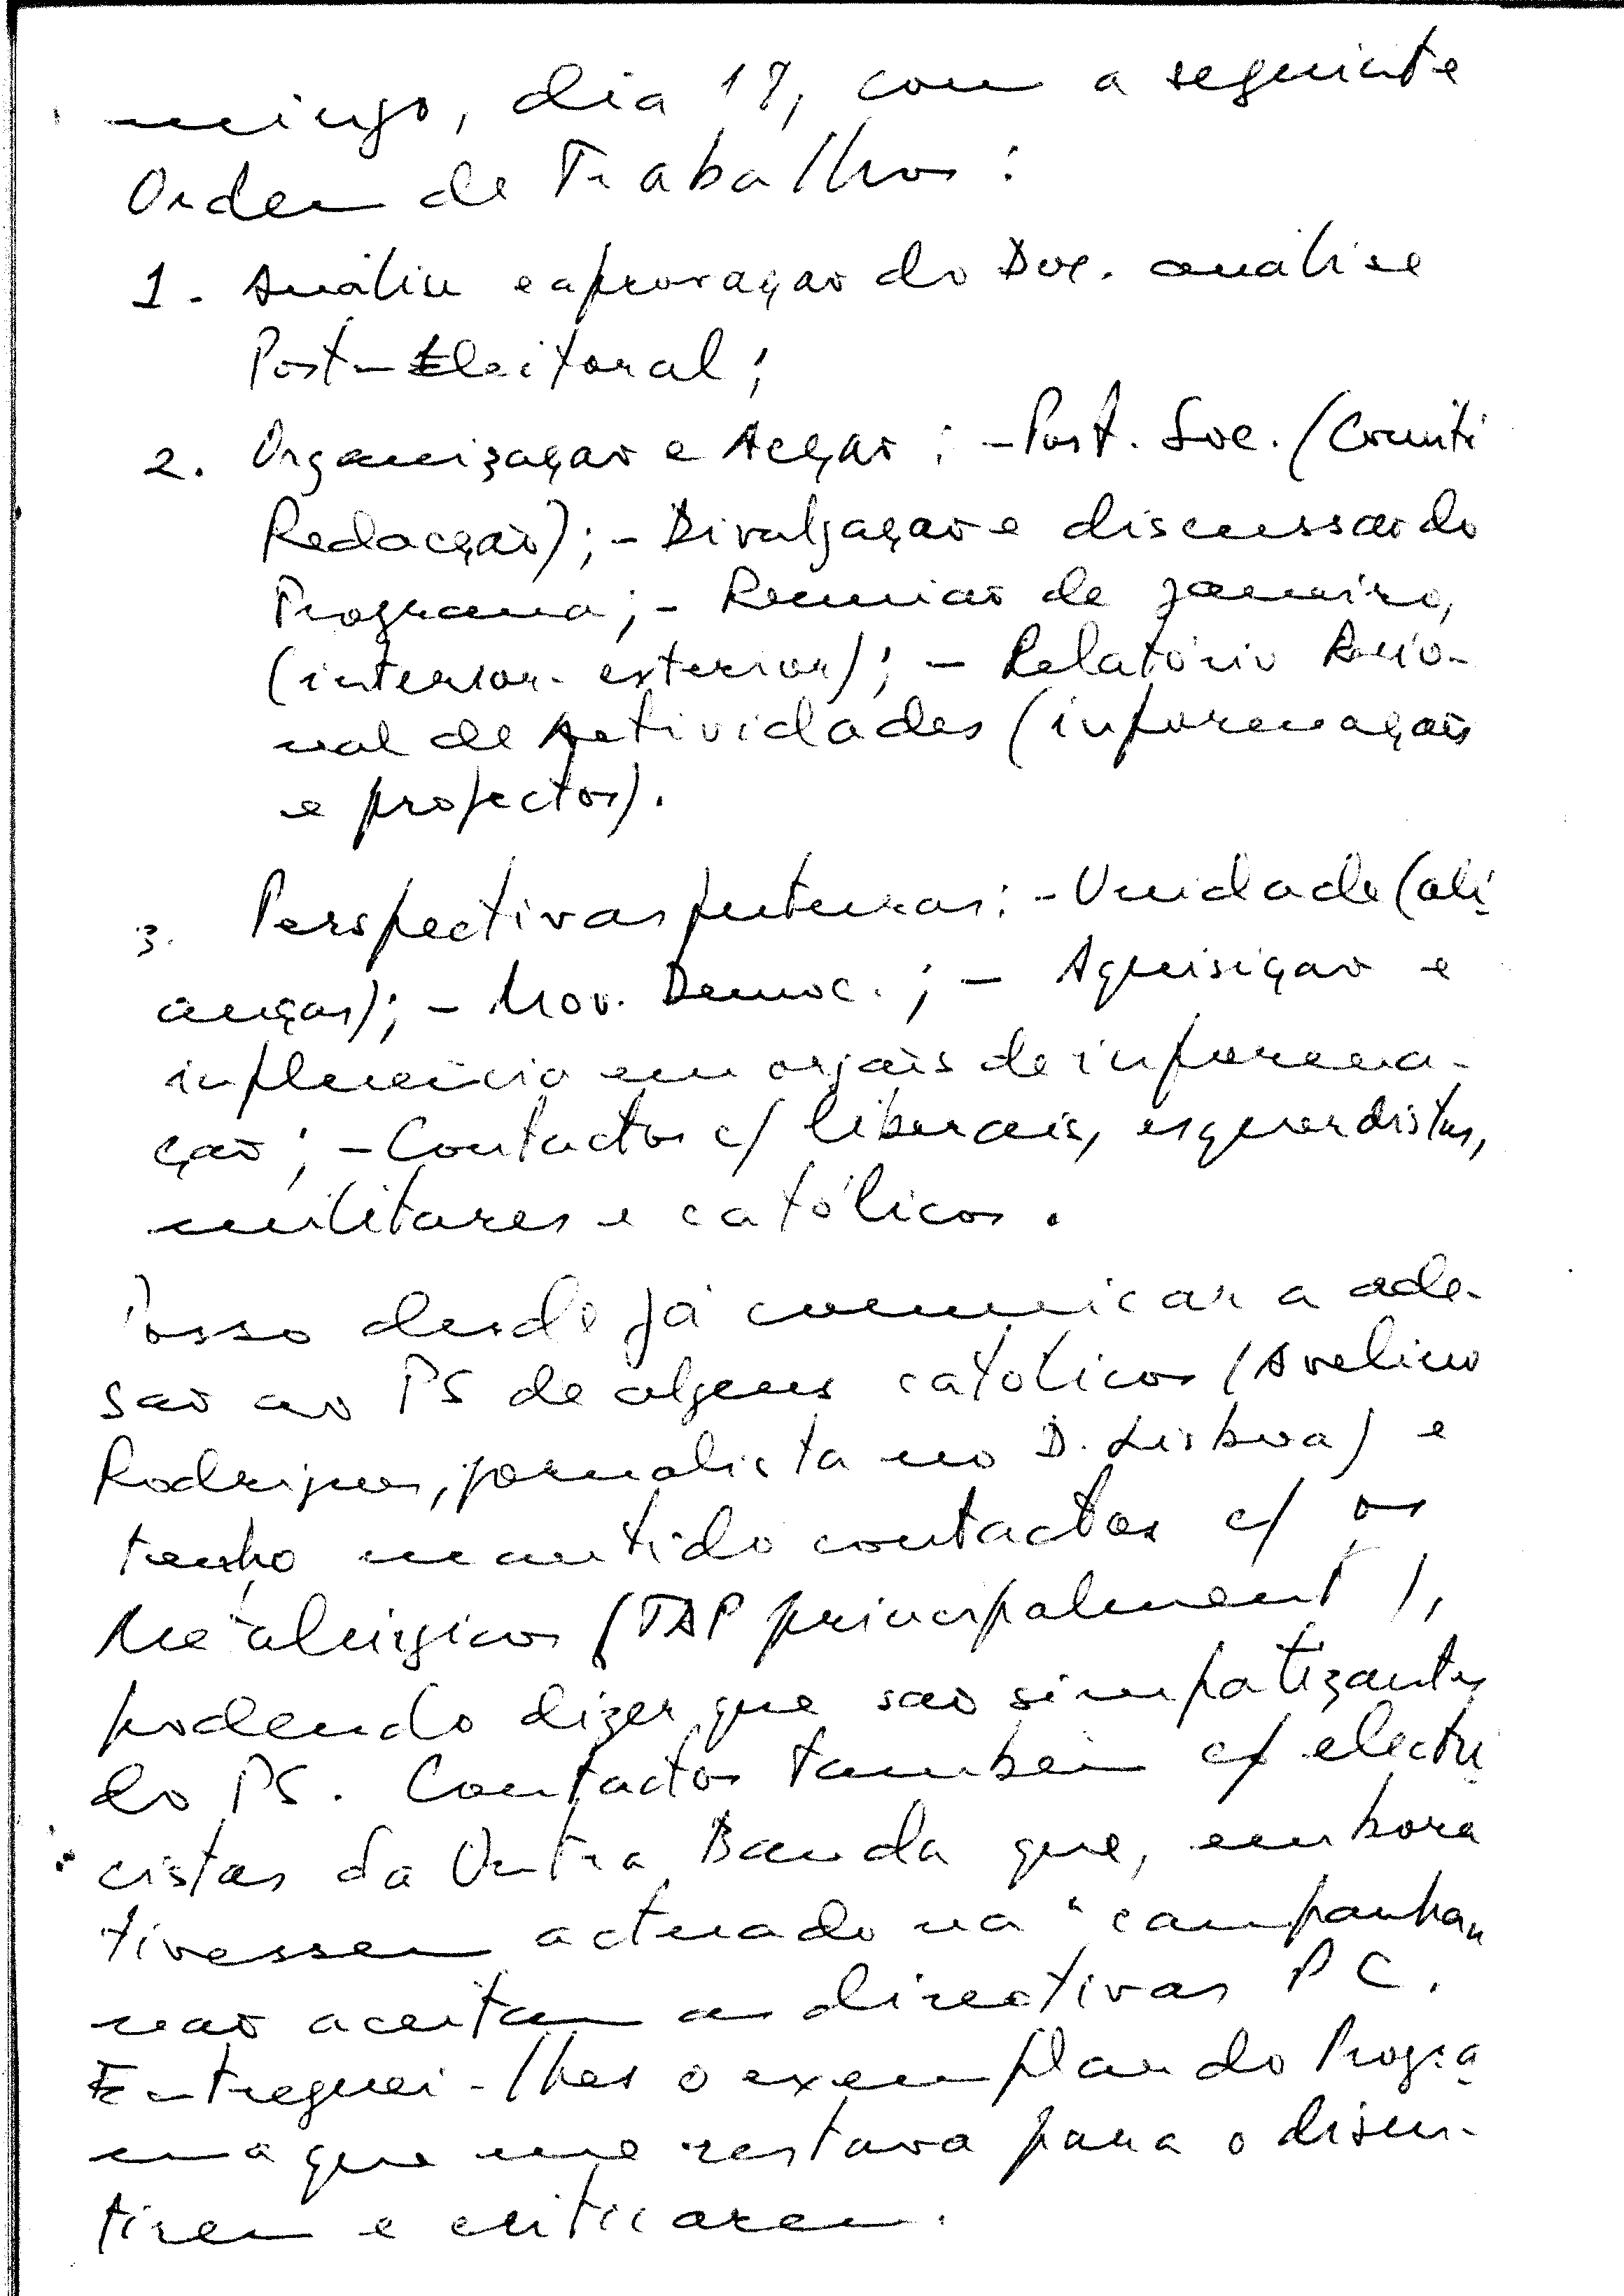 mingo, dia 17, com a seguinte
Ordem de Trabalhos:
1. Análise e aprovação do Doc. análise
Post-Eleitoral;
2. Organização e Acção: - Port. Soc. (Comité
Redacção); - Divulgação e discussão do
Programa; - Reunião de janeiro,
(interior-exterior); - Relatório
de Actividades (informações
e projectos).
3. Perspectivas futuras: - Unidade (ali
anças); - Mov. Democ.; - Aquisição e
influência em orgãos de informa-
ção; - Contactos c/ liberais, esquerdistas,
militares e católicos.
Posso desde já comunicar a ade-
são ao PS de alguns católicos (Avelino
Rodrigues, jornalista no D. Lisboa) e
tenho mantido contactos c/ os
Metalúrgicos (TAP principalment),
podendo dizer que são simpatizantes
do PS. Contactos também c/ electri
cistas da Outra Banda que, embora
tivessem actuado na "campanha"
não aceitam as directivas PC.
Entreguei-lhes o exemplar do Progra
ma que me restava para o discu-
tirem e criticarem.